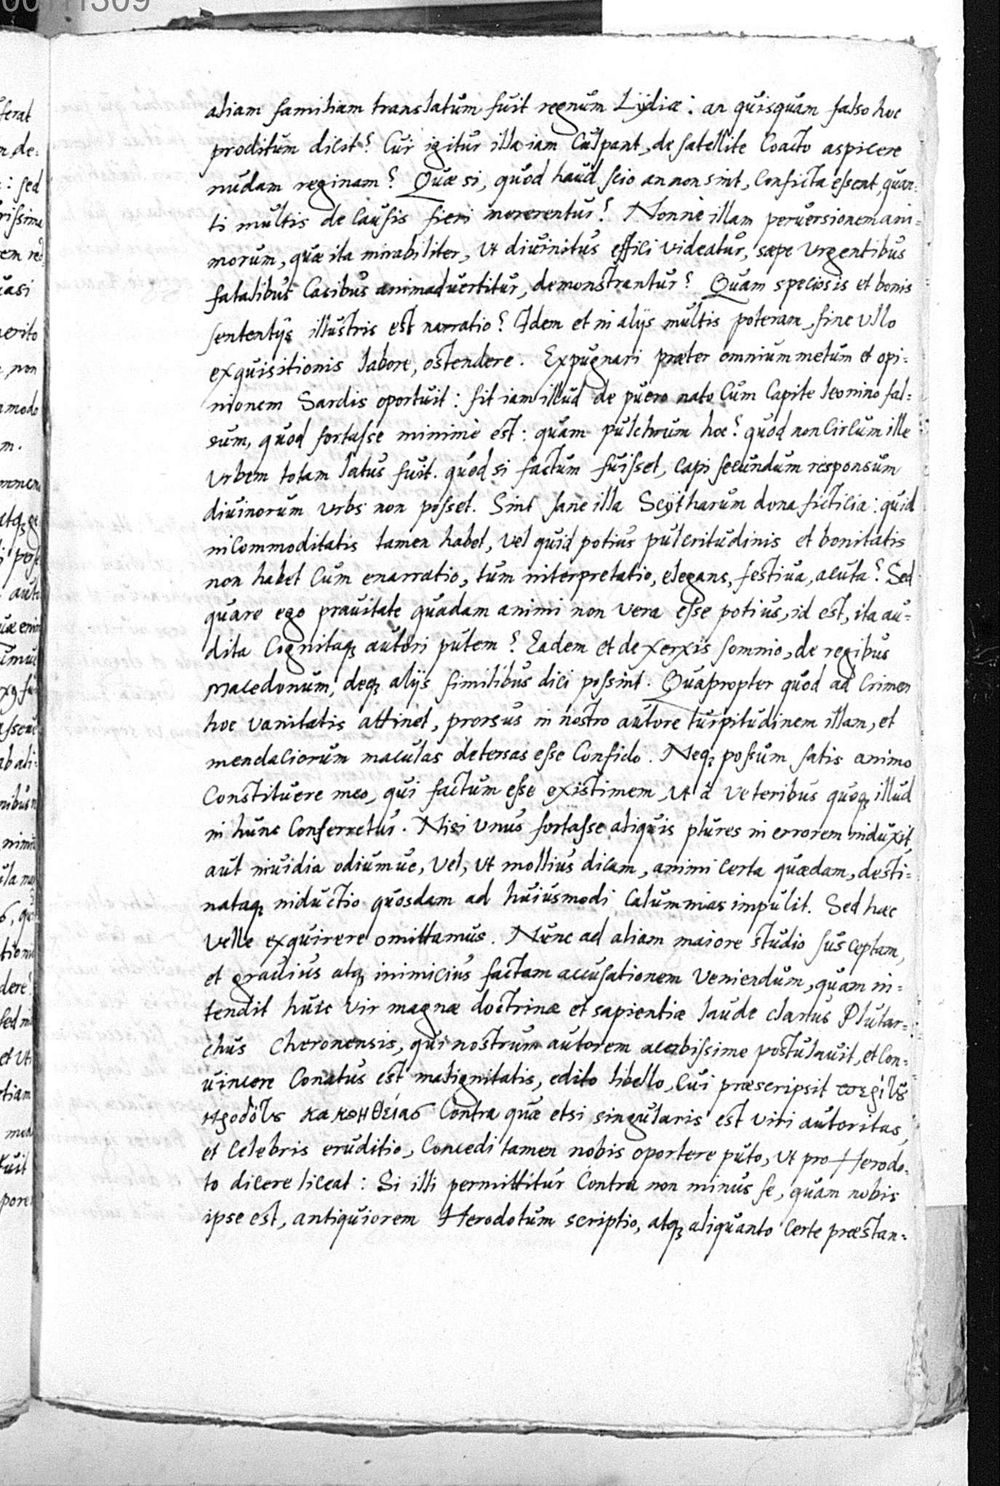 00111309
aliam familiam translatum fuit regnum Lydiæ: an quisquam falso hoc
proditum dicit? Cur igitur illa iam culpant, de satellite coacto aspicere
nudam reginam? Quæ si, quod haud scio an non sint, conficta essent, quan-
ti multis de causis fieri mererentur? Nonne illam perversionem ani-
morum, quæ ita mirabiliter, ut divinitus effici videatur, sæpe urgentibus
fatalibus casibus animadvertitur, demonstrantur? Quam speciosis et bonis
sententijs illustris est narratio? Idem et in alijs multis poteram, sine ullo
exquisitionis labore, ostendere. Expugnari præter omnium metum et opi-
nionem Sardis oportuit: sit iam illud de puero nato cum capite leonino fal-
sum, quod fortasse minime est: quam pulchrum hoc? quod non circum ille
urbem totam latus fuit. quod si factum fuisset, capi secundum responsum
divinorum urbs non posset. Sint sane illa Scytharum dona ficticia: quid
incommoditatis tamen habet, vel quid potius pulcritudinis et bonitatis
non habet cum enarratio, tum interpretatio, elegans, festiva, acuta? Sed
quare ego pravitate quadam animi non vera esse potius, id est, ita au-
dita cognitaq; autori putem? Eadem et de Xerxis somnio, de regibus
Macedonum, deq; alijs similibus dici possint. Quapropter quod ad crimen
hoc vanitatis attinet, prorsus in nostro autore turpitudinem illam, et
mendaciorum maculas detersas esse confido. Neq; possum satis animo
constituere meo, qui factum esse existimem, ut à veteribus quoq; illud
in hunc conferretur. Nisi unus fortasse aliquis plures in errorem induxit,
aut invidia odiumve, vel, ut mollius dicam, animi certa quædam, desti-
nataq; inductio quosdam ad huiusmodi calumnias impulit. Sed hæc
velle exquirere omittamus. Nunc ad aliam maiore studio susceptam,
et gravius atq; inimicius factam accusationem veniendum, quam in-
tendit huic vir magnæ doctrinæ et sapientiæ laude clarus Plutar-
chus Cheronensis, qui nostrum autorem acerbissime postulavit, et con-
vincere conatus est malignitatis, edito libello, cui præscripsit περὶ τῆς
Ἡροδότου κακοηθείας Contra quæ etsi singularis est viri autoritas,
et celebris eruditio, concedi tamen nobis oportere puto, ut pro Herodo-
to dicere liceat: Si illi permittitur contra non minus se, quam nobis
ipse est, antiquiorem Herodotum scriptio, atq; aliquanto certe præstan-